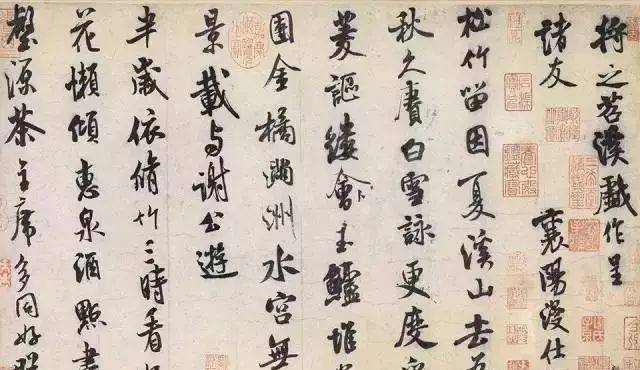 將之苕溪戲作呈
諸友
襄陽漫仕
松竹留因夏溪山去
秋久賡白雪詠更度
菱謳縷會玉鱸堆
團金橘滿洲水宮無
景載与謝公遊
半歲依脩竹三時看
花懶傾惠泉酒點盡
壑源茶主席多同好群